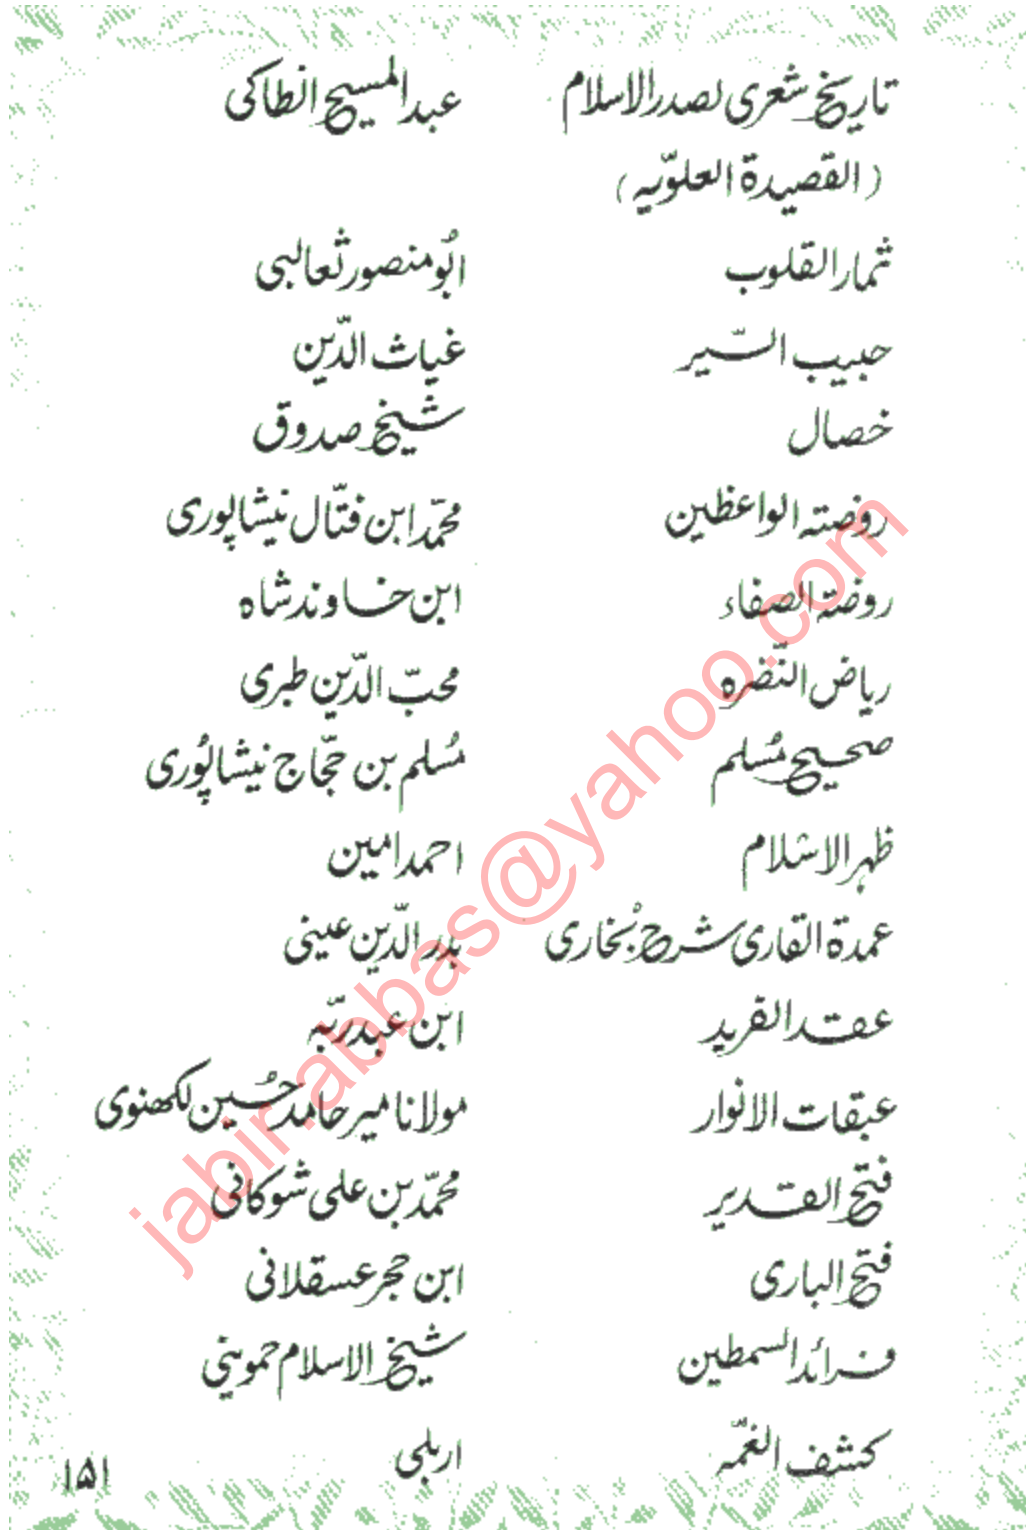 تاریخ شعری لصدر الاسلام عبد المسیح انطاکی
(القصیدة العلوّیہ)
ثمار القلوب ابُو منصور ثعالبی
حبیب السّیر غیاث الدّین
خصال شیخ صدوق
روضتہ الواعظین محمّد ابن فتّال نیشاپوری
روضۃ الصفاء ابن خاوند شاہ
ریاض النّضرہ محبّ الدّین طبری
صحیح مُسلم مُسلم بن حجّاج نیشاپُوری
ظہر الاسلام احمد امین
عمدة القاری شرح بُخاری بدر الدّین عینی
عقد الفرید ابن عبد ربّہ
عبقات الانوار مولانا میر حامد حُسین لکھنوی
فتح القدیر محمّد بن علی شوکانی
فتح الباری ابن حجر عسقلانی
فرائد السمطین شیخ الاسلام حموینی
کشف الغمّہ اربلی
۱۵۱
jabir.abbas@yahoo.com